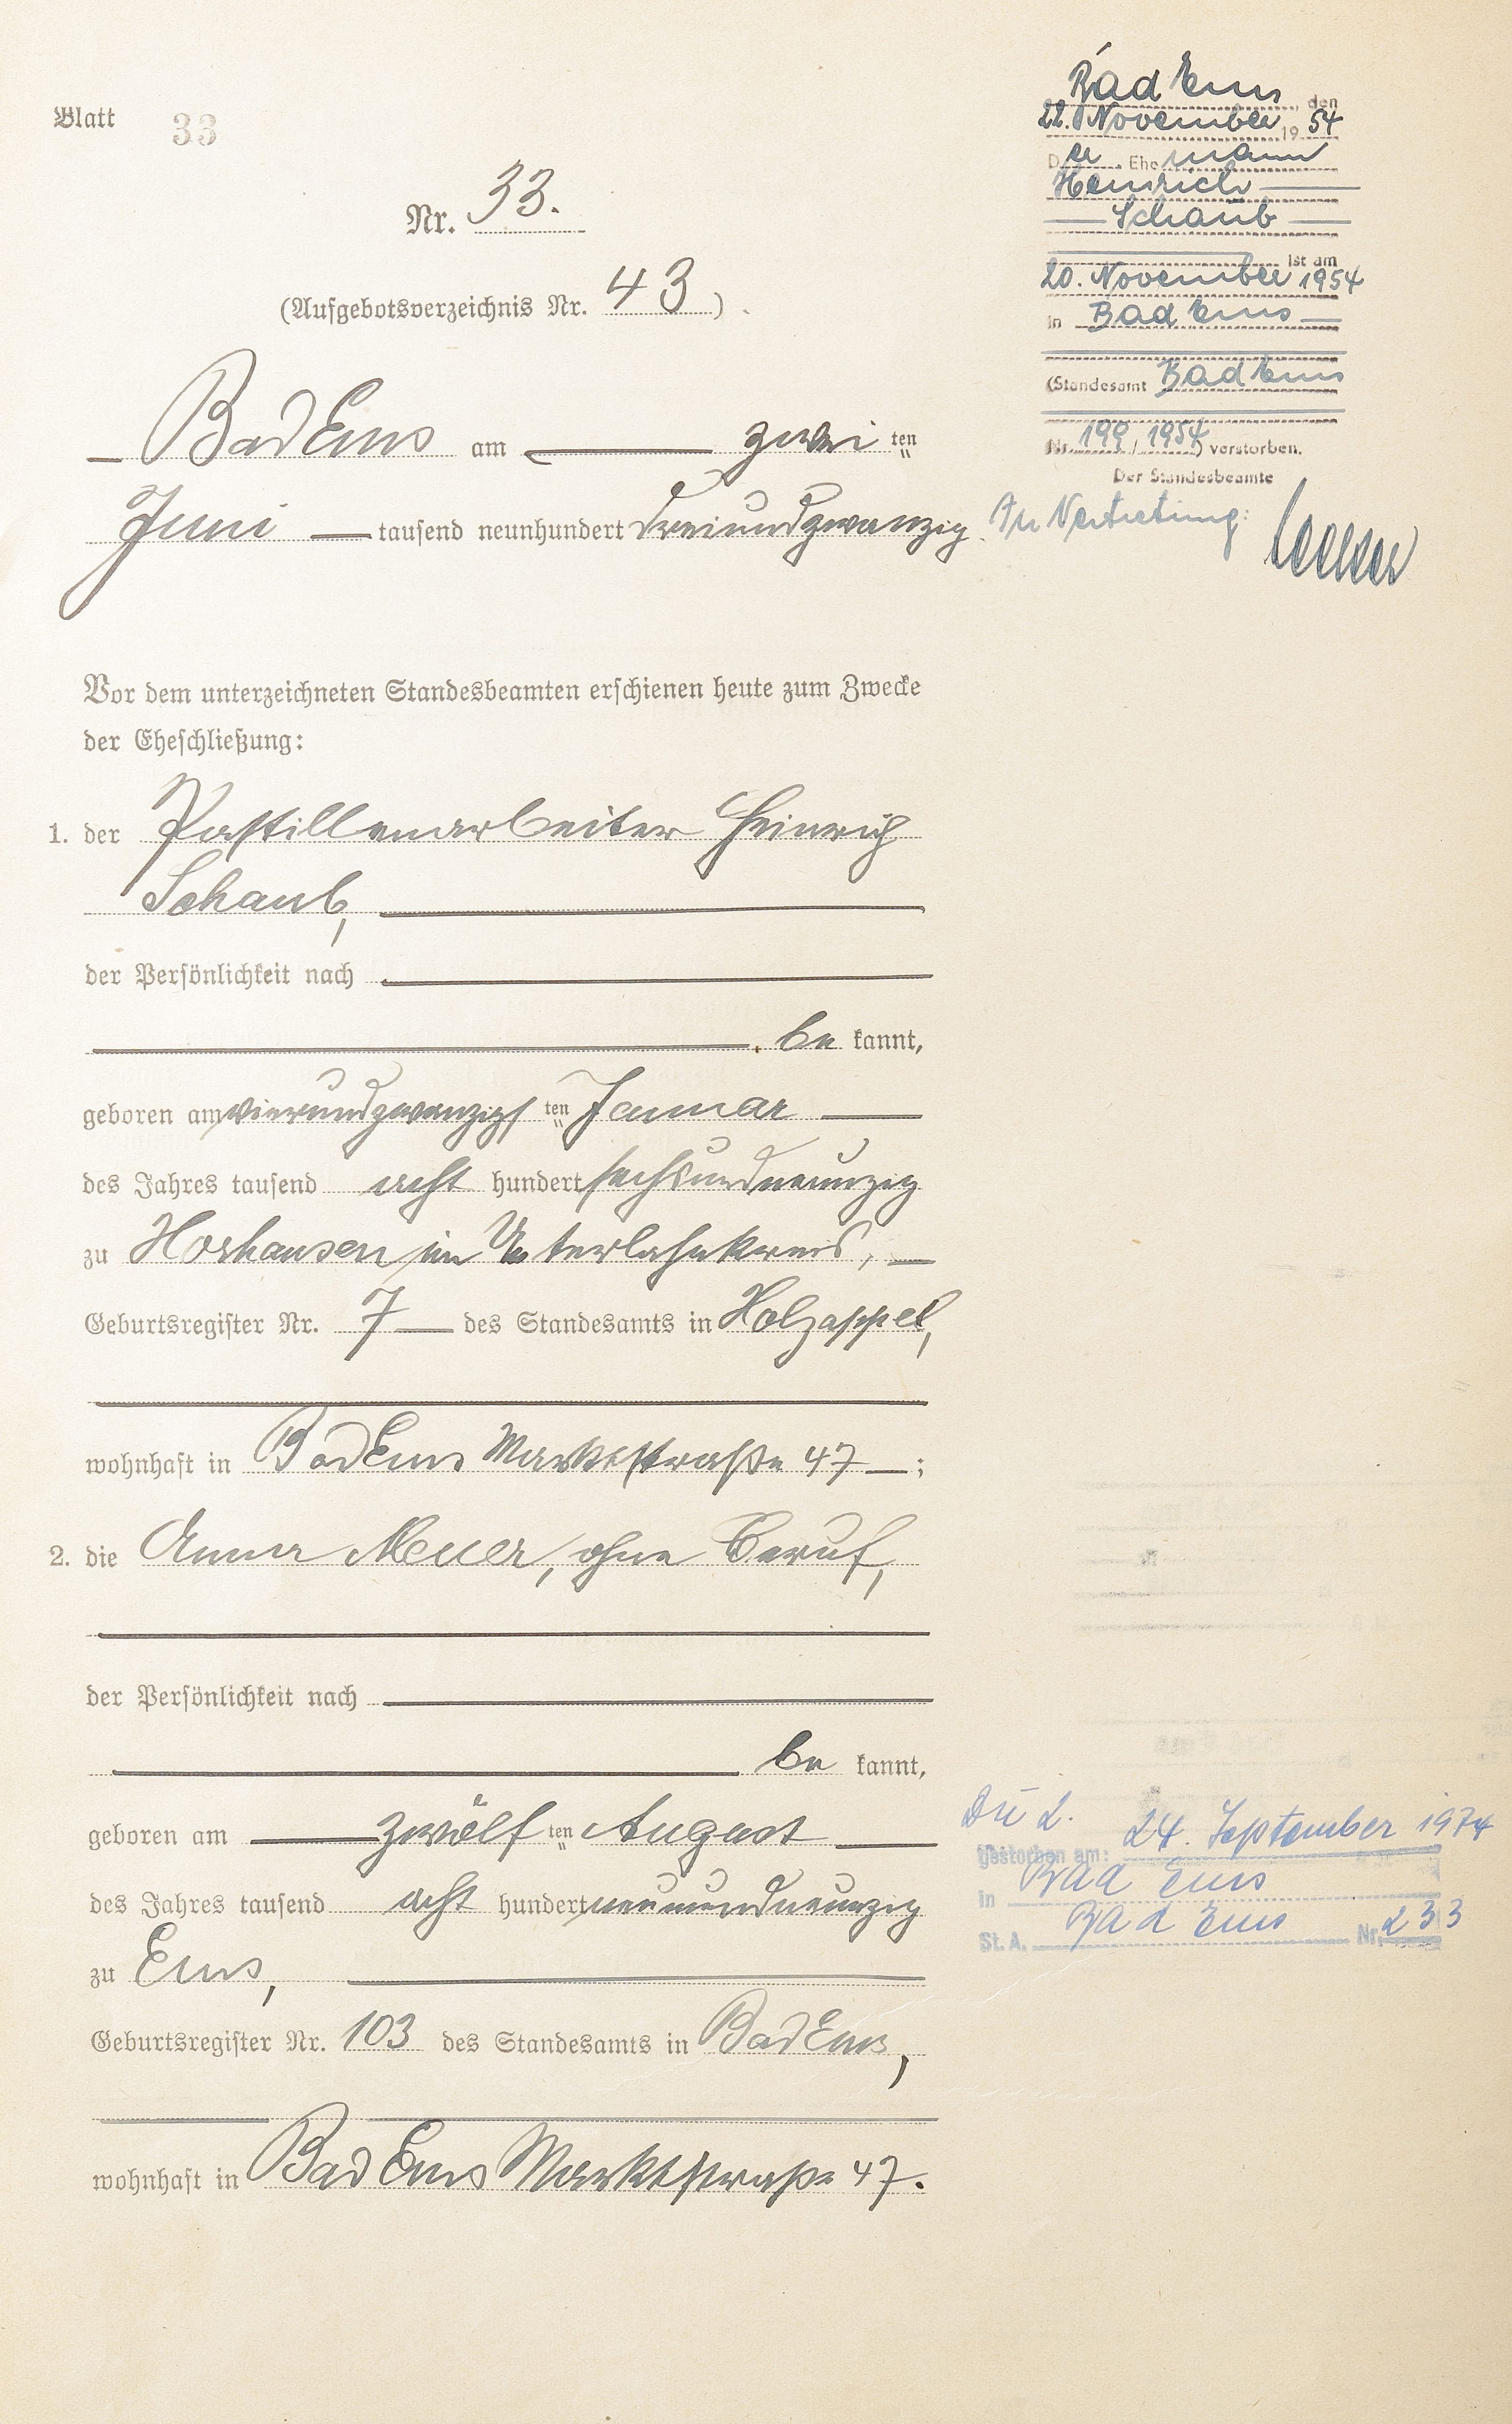 Blatt 33
Nr. 33.
(Aufgebotsverzeichnis Nr. 43)
Bad Ems am zwei ten
Juni tausend neunhundert dreiundzwanzig.
Vor dem unterzeichneten Standesbeamten erschienen heute zum Zwecke
der Eheschließung:
1. der Pastillenarbeiter Heinrich
Schaub,
der Persönlichkeit nach
be kannt,
geboren am vierundzwanzigs ten Januar
des Jahres tausend acht hundert sechsundneunzig
zu Horhausen im Unterlahnkreis,
Geburtsregister Nr. 7 des Standesamts in Holzappel,
wohnhaft in Bad Ems Marktstraße 47;
2. die Anna Meuer, ohne Beruf,
der Persönlichkeit nach
be kannt,
geboren am zwölf ten August
des Jahres tausend acht hundert neunundneunzig
zu Ems,
Geburtsregister Nr. 103 des Standesamts in Bad Ems,
wohnhaft in Bad Ems Marktstraße 47.
Bad Ems, den
22. November 19 54
D er Ehe mann
Heinrich
Schaub
ist am
20. November 1954
in Bad Ems
(Standesamt Bad Ems
Nr. 199 / 1954) verstorben.
Der Standesbeamte
In Vertretung:
Die 2.
gestorben am: 24. September 1974
in Bad Ems
St. A. Bad Ems Nr. 233